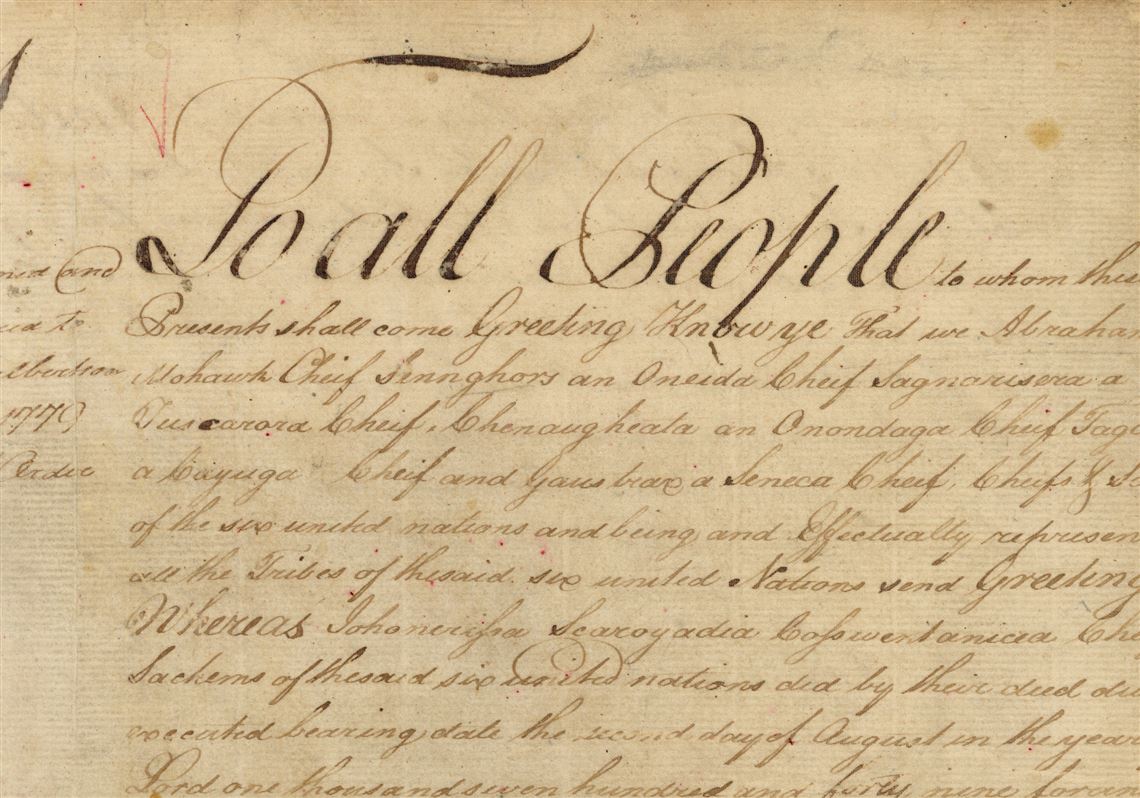 To all People to whom these
Presents shall come Greeting Know ye That we Abraham
Mohawk Cheif Sennghors an Oneida Cheif Sagnarisera a
Tuscarora Cheif, Chenaugheata an Onondaga Cheif Taga
a Cayuga Cheif and Gaustrax a Seneca Cheif, Cheifs &
of the six united nations and being and Effectually represen
all the Tribes of thesaid six united Nations send Greeting
Whereas Johonerissa Scaroyadia Cosswentanicea Che
Sachems of thesaid six united nations did by their deed du
executed bearing date the second day of August in the year
Lord one thousand seven hundred and forty nine for an
and
1770